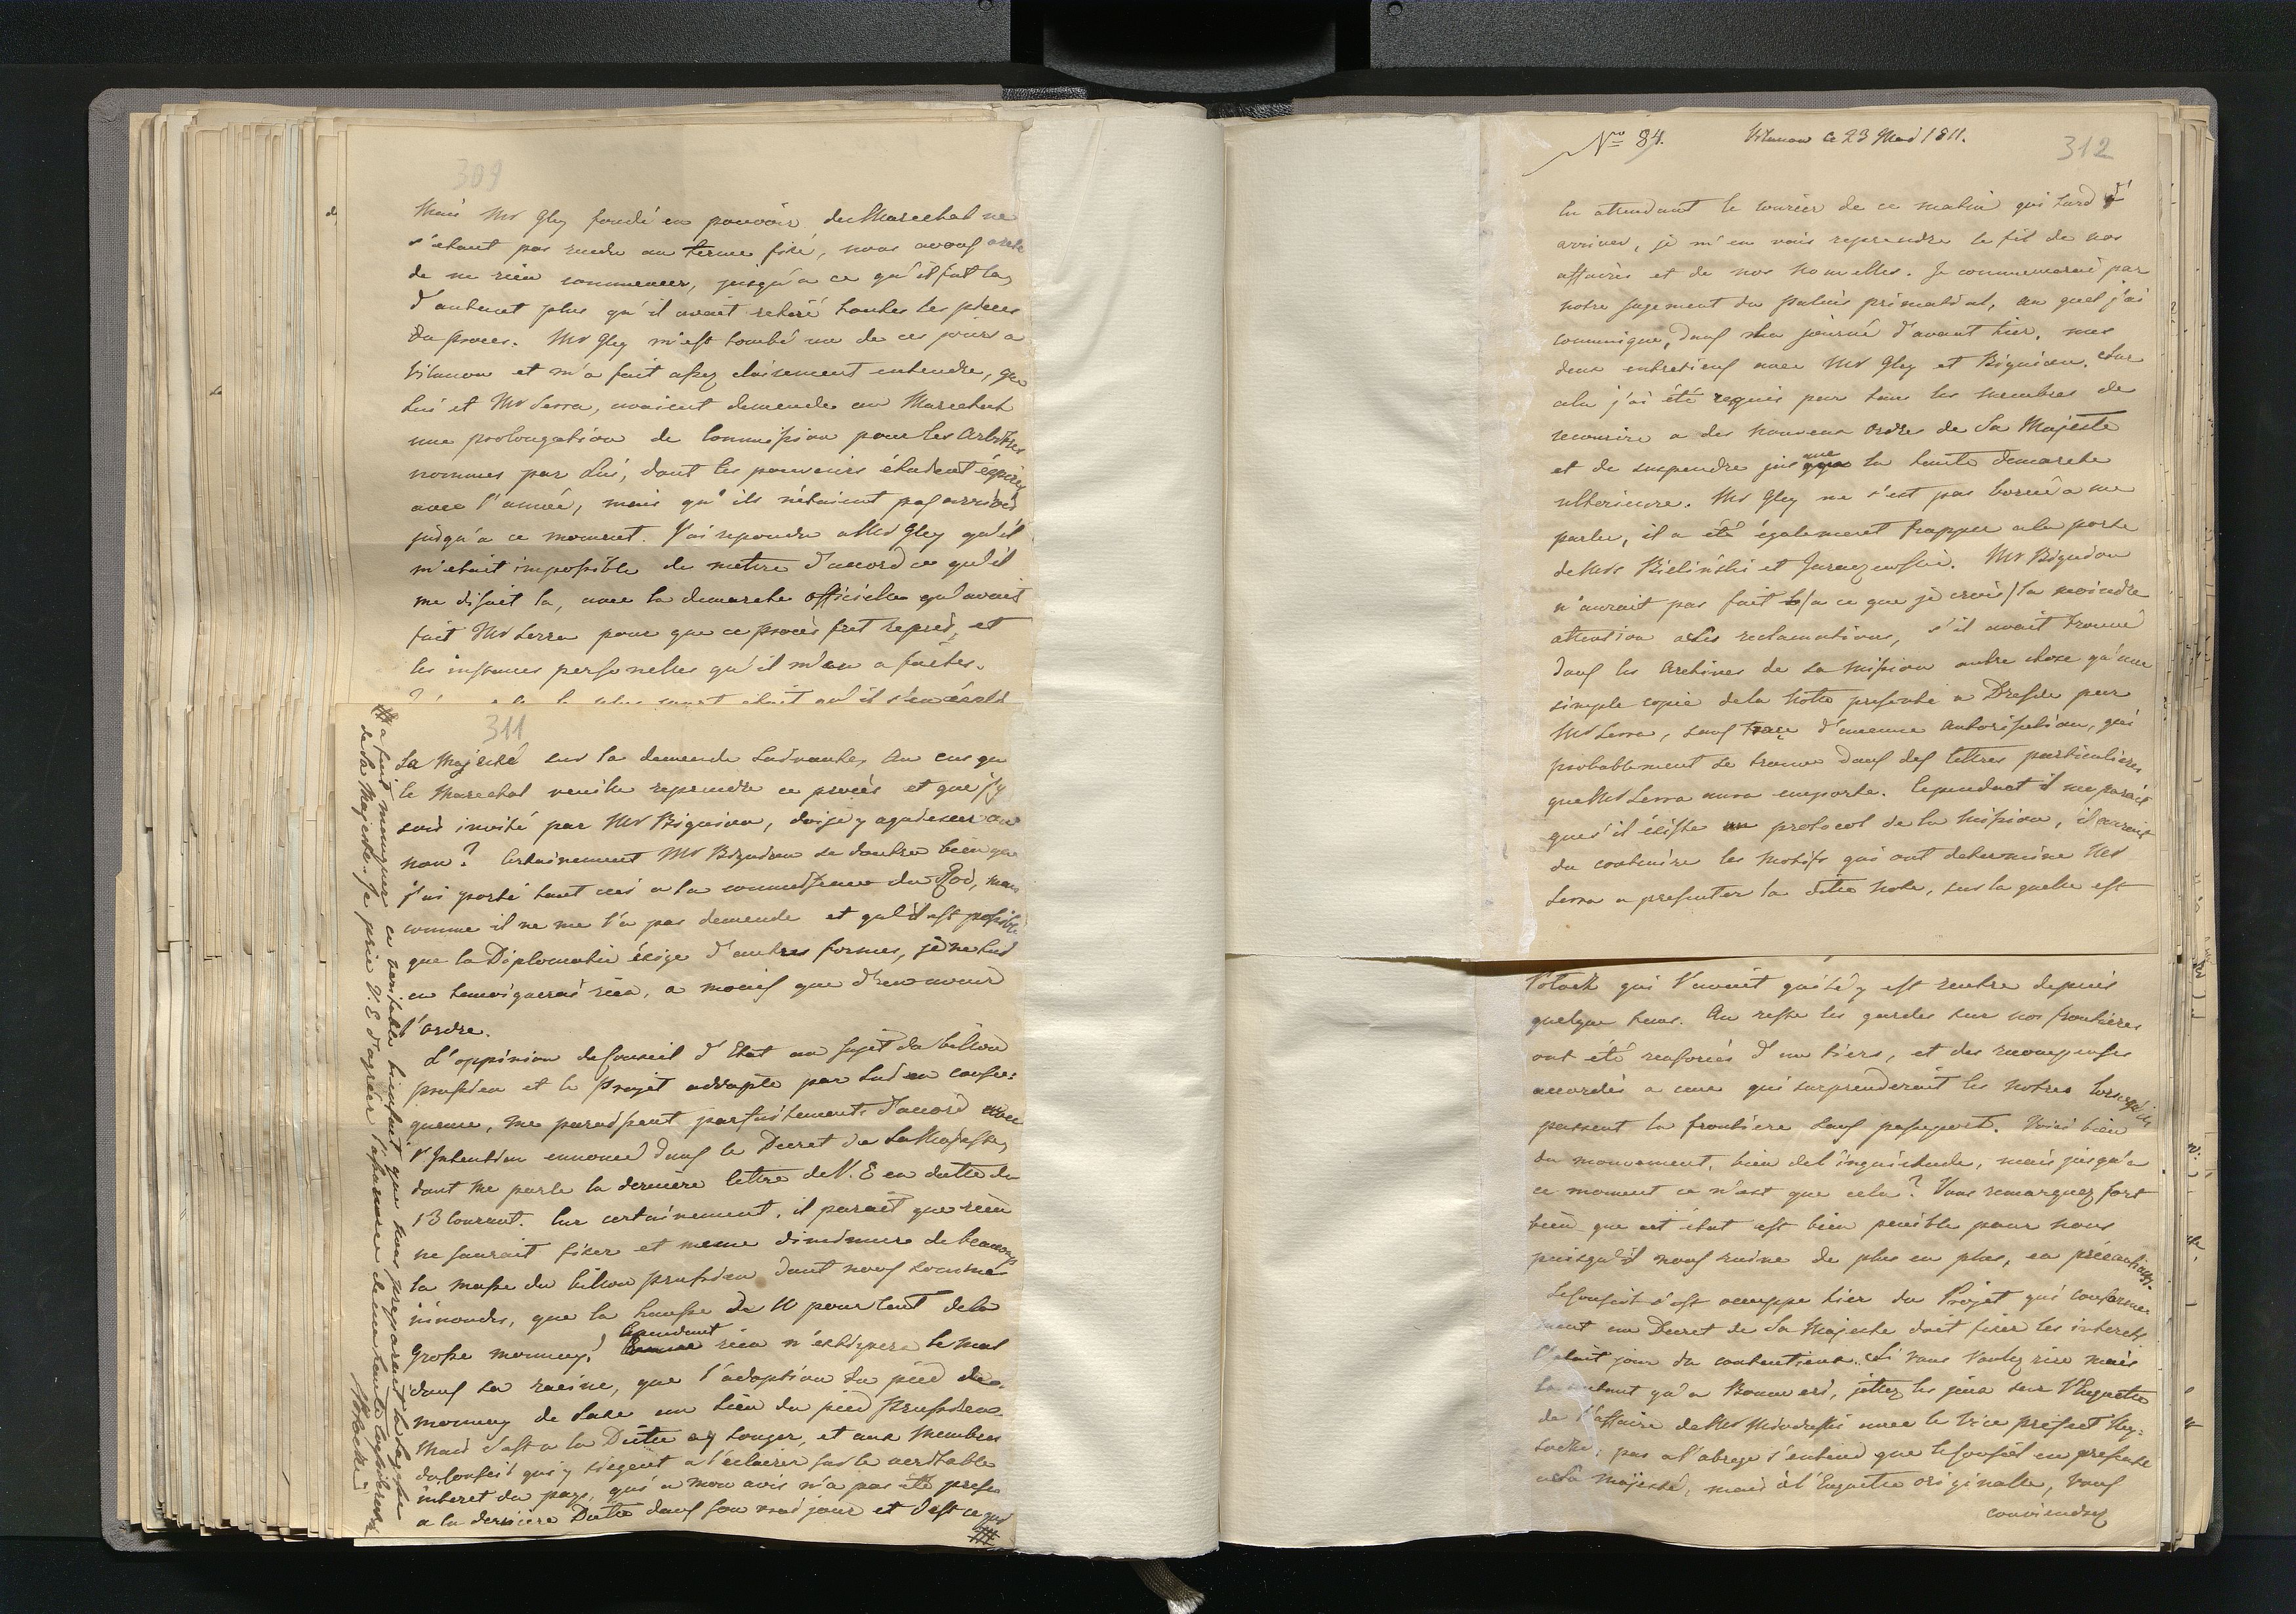 309
Mais Mr Gley fondé en pouvoir du Marechal ne
s'etant pas rendu au terme fixé, nous avons
de ne rien commencer, jusqu'a ce qu'il fut la,
d'autant plus qu'il avait retiré toutes les pieces
du proces. Mr Gley m'est tombé un de ces jours a
Vilanow et m'a fait assez clairement entendre, que
lui et Mr Serra, avaient demende au Marechal
une prolongation de Commission pour les Arbitres
nommes par lui, dont les pouvoirs étaient éxpirés
avec l'année, mais qu'ils n'étaient pas arrivés
jusqu'a ce moment. J'ai repondu a Mr Gley qu'il
m'etait impossible de mettre d'accord ce qu'il
me disait la, avec la demarche officielle qu'avait
fait Mr Serra pour que ce procès fut repris, et
les instances personelles qu'il m'en a faites.
311
Sa Majesté sur la demende suivante, Au cas que
le Marechal veuille reprendre ce procès et que j'y
sois invité par Mr Bignion, dois je y aquiescer ou
non? Certainement Mr Bignion se doutera bien que
j'ai porté tout ceci a la connaissance du Roi, mais
comme il ne me l'a pas demende et qu'il est possible
que la Diplomatie éxige d'autres formes, je ne lui
en temoignerai rien, a moins que d'en avoir
l'ordre.
L'oppinion du Conseil d'Etat au sujet du billon
prussien et le Projet addopté par lui en conse:
quence, me paraissent parfaitement d'accord avec
l'Intention ennoncé dans le Decret de Sa Majesté,
dont me parle la derniere lettre de V. E en datte du
13 Courant. Car certainement, il parait que rien
ne saurait fixer et meme diminuer de beaucoup
la masse du billon prussien dont nous sommes
innondés, que la hausse de 10 pour Cent de la
Grosse monnaye, Cependant rien n'extirpera le mal
dans sa racine, que l'adoption du pied de
monnaye de Saxe au lieu du pied Prussien.
Mais c'est a la Diette a y songer, et aux Membres
du Conseil qui y siegent a l'éclairer sur le veritable
interet du pays, qui a mon avis n'a pas été presenté
a la derniere Diette dans son vrai jour et c'est ce qui
a fait manquer ce veritable bienfait que nous preparait la sagesse
de Sa Majesté. Je prie V. E d'agréer l'assurance de ma haute consideration
Nro 84. Vilanow ce 23 Mai 1811. 312
En attendant le courier de ce matin qui tard d'
arriver, je m'en vais reprendre le fil de nos
affaires et de nos nouvelles. Je commencerai par
notre jugement du palais primatial, au quel j'ai
communique, dans la journé d'avant hier, mes
deux entretiens avec Mr Gley et Bignion. Sur
cela j'ai été requis par tous les membres de
recourire a des nouveaux Ordres de Sa Majesté
et de suspendre jusque la toute demarche
ulterieure. Mr Gley ne s'est pas borné a me
parler, il a été également frapper a la porte
de Mrs Bieliński et Jaraczewski. Mr Bignion
n'aurait pas fait /a ce que je crois/ la moindre
attention a ses reclamations, s'il avait trouvé
dans les Archives de la Mission autre chose qu'une
simple copie de la Notte presenté a Dresde par
Mr Serra, sans trace d'aucune Autorisation, qui
probablement se trouve dans des lettres particulieres
que Mr Serra aura emporté. Cependant il me parait
que s'il éxiste un protocol de la Mission, il aurait
du contenire les Motifs qui ont determiné Mr
Serra a presenter la ditte Note, sur la quelle est
qui l'avait quité y est rentré depuis
quelque tems. Au reste les gardes sur nos frontieres
ont été renforcés d'un tiers, et des recompenses
accordés a ceux qui surprenderont les notres lorsqu'ils
passent la frontiere sans passeport. Voici bien
du mouvement, bien de l'inquietude, mais jusqu'a
ce moment ce n'est que cela? Vous remarquez fort
bien que cet état est bien penible pour nous
puisqu'il nous ruine de plus en plus, en précautions.
Le Conseil s'est occuppé hier du Projet qui conforme
ment au Decret de Sa Majesté doit fixer les interets
C'etait jour du contentieux. Si vous voulez rire mais
jettez les jeux sur l'Enquette
de l'affaire de Mr avec le Vice prefet
pas a l'abregé s'entend que le Conseil en presente
a Sa Majesté, mais a l'Enquette originalle, vous
conviendrez